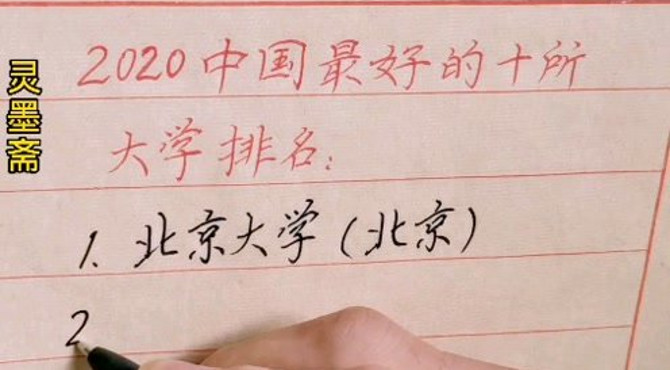 灵墨斋
2020中国最好的十所
大学排名:
1. 北京大学(北京)
2